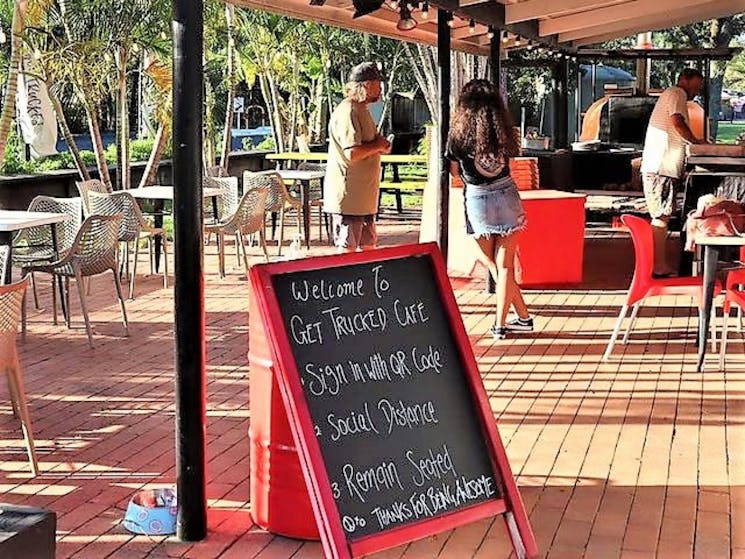 Welcome To
GET TRUCKED CAFE
1 Sign in with QR Code
2 Social Distance
3 Remain Seated
THANKS FOR BEING AWESOME